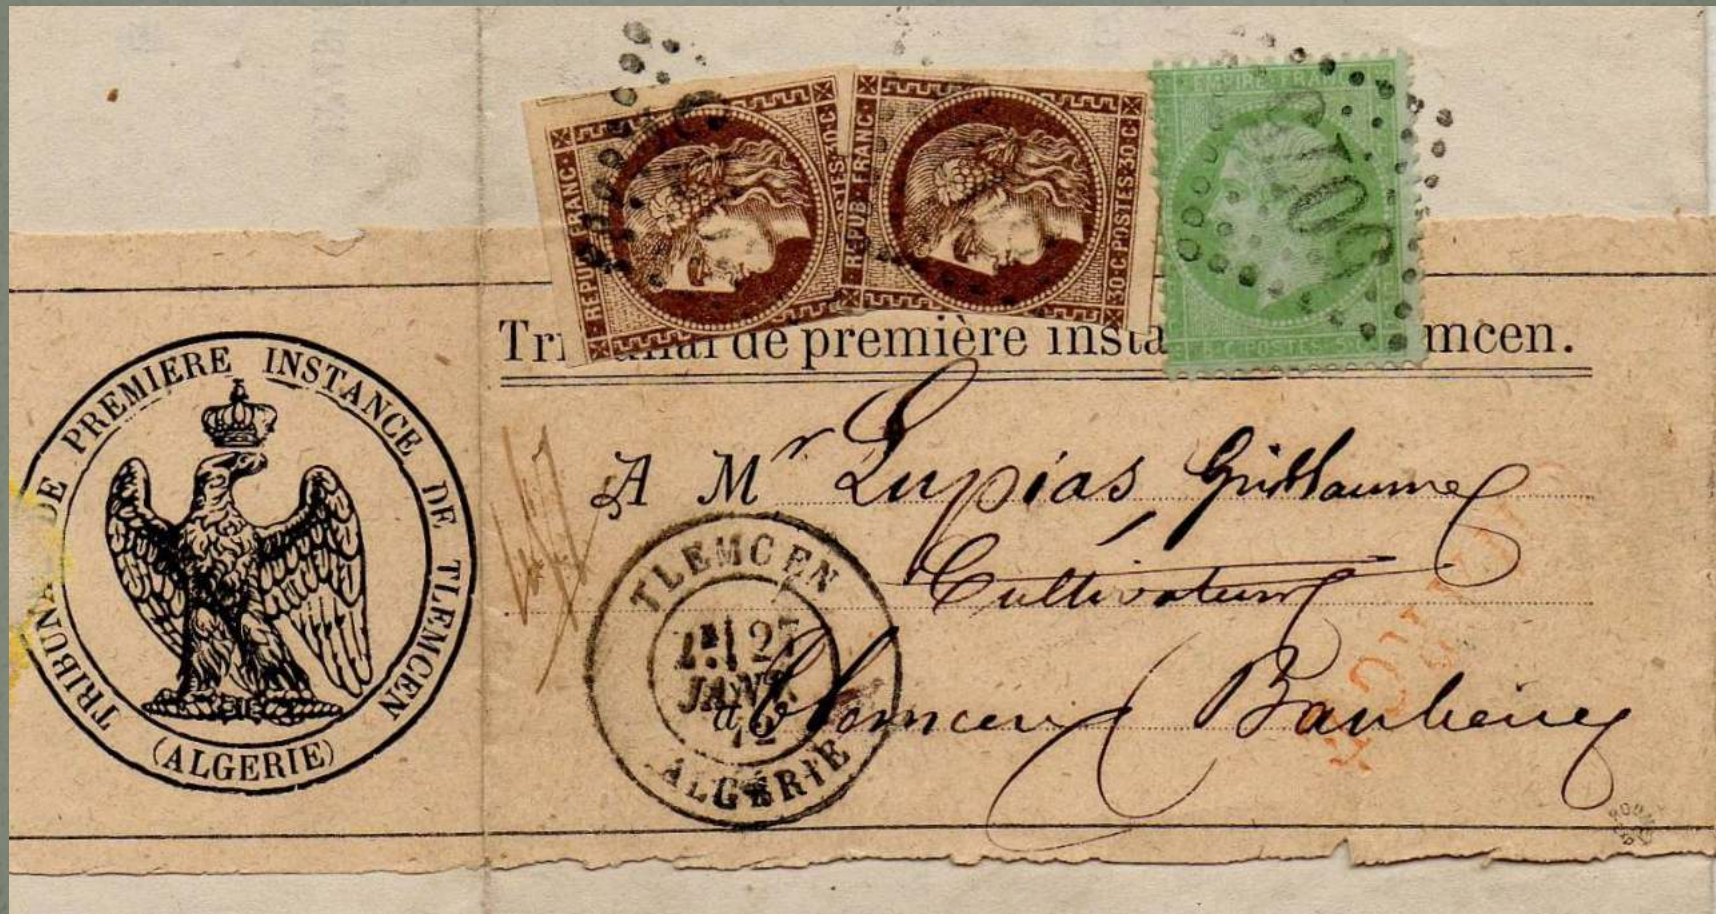 REPUB·FRANC·
30·C·POSTES·30·C
REPUB·FRANC·
30·C·POSTES·30·C
EMPIRE FRANC
5·C·POSTES·5·C
Tribunal de première insta mcen.
TRIBUNAL DE PREMIERE INSTANCE DE TLEMCEN
(ALGERIE)
A Mr Lupias, Guillaume
Cultivateur
à Tlemcen
TLEMCEN
27
JANV.
72
ALGÉRIE